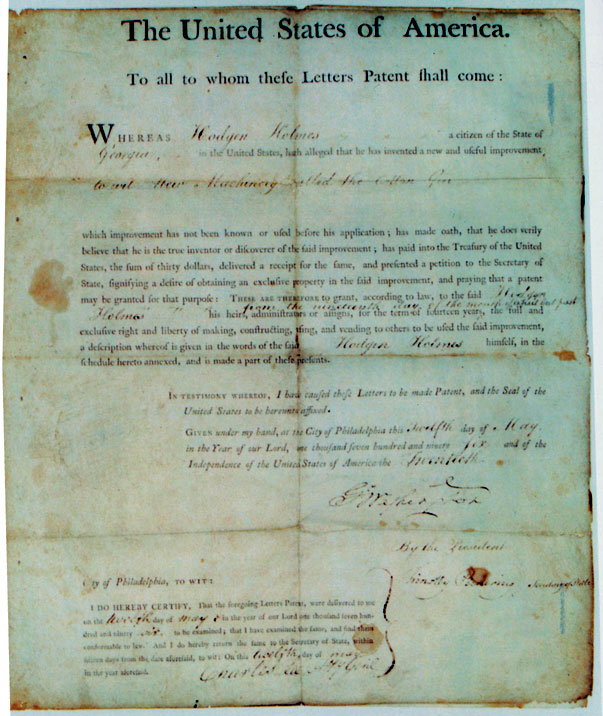 The United States of America.
To all to whom theſe Letters Patent ſhall come:
WHEREAS Hodgen Holmes a citizen of the State of
Georgia, in the United States, hath alleged that he has invented a new and uſeful improvement
to wit New Machinery called the Cotton Gin
which improvement has not been known or uſed before his application; has made oath, that he does verily
believe that he is the true inventor or diſcoverer of the ſaid improvement; has paid into the Treaſury of the United
States, the ſum of thirty dollars, delivered a receipt for the ſame, and preſented a petition to the Secretary of
State, ſignifying a deſire of obtaining an excluſive property in the ſaid improvement, and praying that a patent
may be granted for that purpoſe: THESE ARE THEREFORE to grant, according to law, to the ſaid Hodgen
Holmes his heirs, adminiſtrators or aſſigns, from the nineteenth day of the month for the term of fourteen years, the full and
excluſive right and liberty of making, conſtructing, uſing, and vending to others to be uſed the ſaid improvement,
a deſcription whereof is given in the words of the ſaid Hodgen Holmes himſelf, in the
ſchedule hereto annexed, and is made a part of theſe preſents.
IN TESTIMONY WHEREOF, I have cauſed theſe Letters to be made Patent, and the Seal of the
United States to be hereunto affixed.
GIVEN under my hand, at the City of Philadelphia this twelfth day of May
in the Year of our Lord, one thouſand ſeven hundred and ninety ſix and of the
Independence of the United States of America the Twentieth.
G Washington
By the President
Timothy Pickering Secretary of State
City of Philadelphia, TO WIT:
I DO HEREBY CERTIFY, That the foregoing Letters Patent, were delivered to me
on the twelfth day of May in the year of our Lord one thouſand ſeven hun-
dred and ninety six to be examined; that I have examined the ſame, and find them
conformable to law. And I do hereby return the ſame to the Secretary of State, within
fifteen days from the date aforeſaid, to wit: On this twelfth day of may
in the year aforeſaid.
Charles Lee